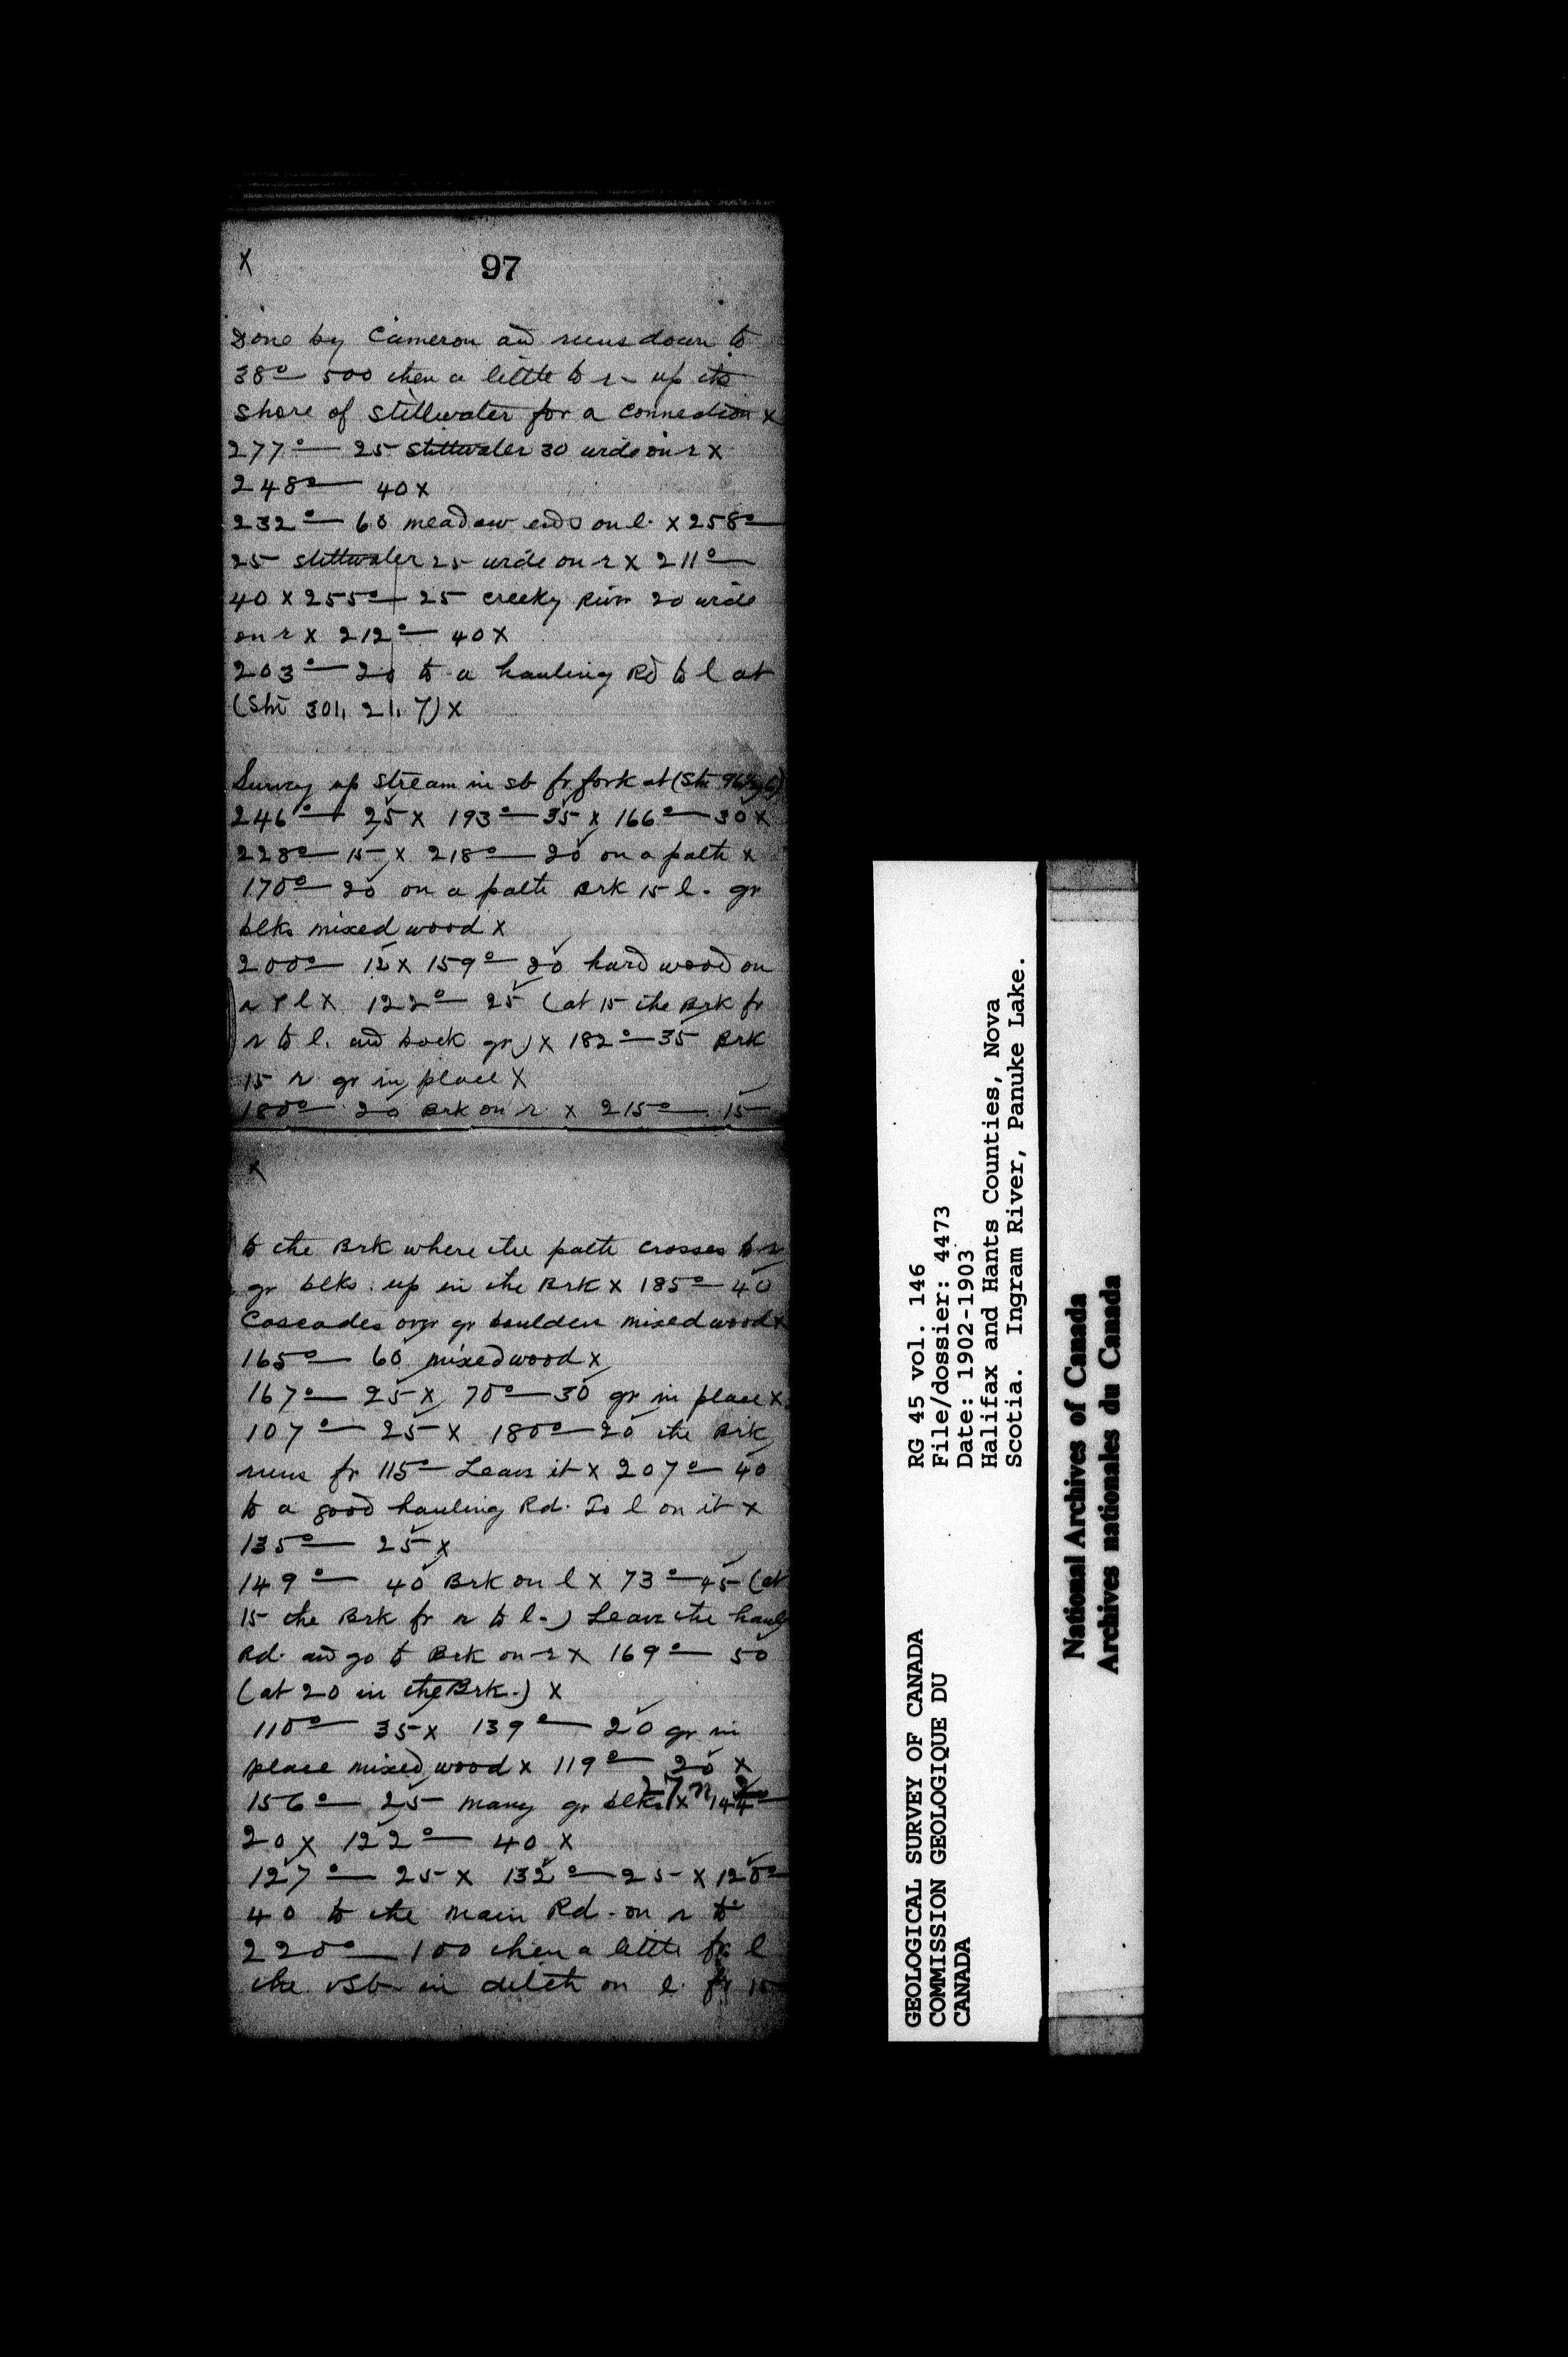 X
97
Done by Cameron and runs down to
38° — 500 then a little to r up the
shore of stillwater for a connection x
277° — 25 stillwater 30 wide on r x
248° — 40 x
232° — 60 meadow ends on l. x 258° —
25 stillwater 25 wide on r x 211° —
40 x 255° — 25 creeky River 20 wide
on r x 212° — 40 x
203° — 20 to a hauling Rd to l at
(Sht 301, 21, 7) x
Survey up stream in sb fr fork at (Sht
246° — 25 x 193° — 35 x 166° — 30 x
228° — 15 x 218° — 20 on a path x
170° — 20 on a path Brk 15 l. gr
blks mixed wood x
200° — 12 x 159° — 20 hard wood on
r & l x 122° — 25 (at 15 the Brk fr
r to l. and back gr) x 182° — 35 Brk
15 r gr in place x
180° — 20 Brk on r x 215° — 15
x
to the Brk where the path crosses to r
gr blks up in the Brk x 185° — 40
Cascades over gr boulders mixed wood x
165° — 60 mixed wood x
167° — 25 x 70° — 30 gr in place x
107° — 25 x 180° — 20 the Brk
runs fr 115° — Leave it x 207° — 40
to a good hauling Rd. To l on it x
135° — 25 x
149° — 40 Brk on l x 73° — 45 (at
15 the Brk fr r to l.) Leave the haulg
Rd. and go to Brk on r x 169° — 50
(at 20 in the Brk.) x
110° — 35 x 139° — 20 gr in
place mixed wood x 119° — 20 x
156° — 25 many gr blks x 144° —
20 x 122° — 40 x
127° — 25 x 132° — 25 x 120° —
40 to the main Rd. on r to
220° — 100 then a little fr l
the in ditch on l. fr 15
GEOLOGICAL SURVEY OF CANADA
COMMISSION GEOLOGIQUE DU
CANADA
RG 45 vol. 146
File/dossier: 4473
Date: 1902-1903
Halifax and Hants Counties, Nova
Scotia. Ingram River, Panuke Lake.
National Archives of Canada
Archives nationales du Canada